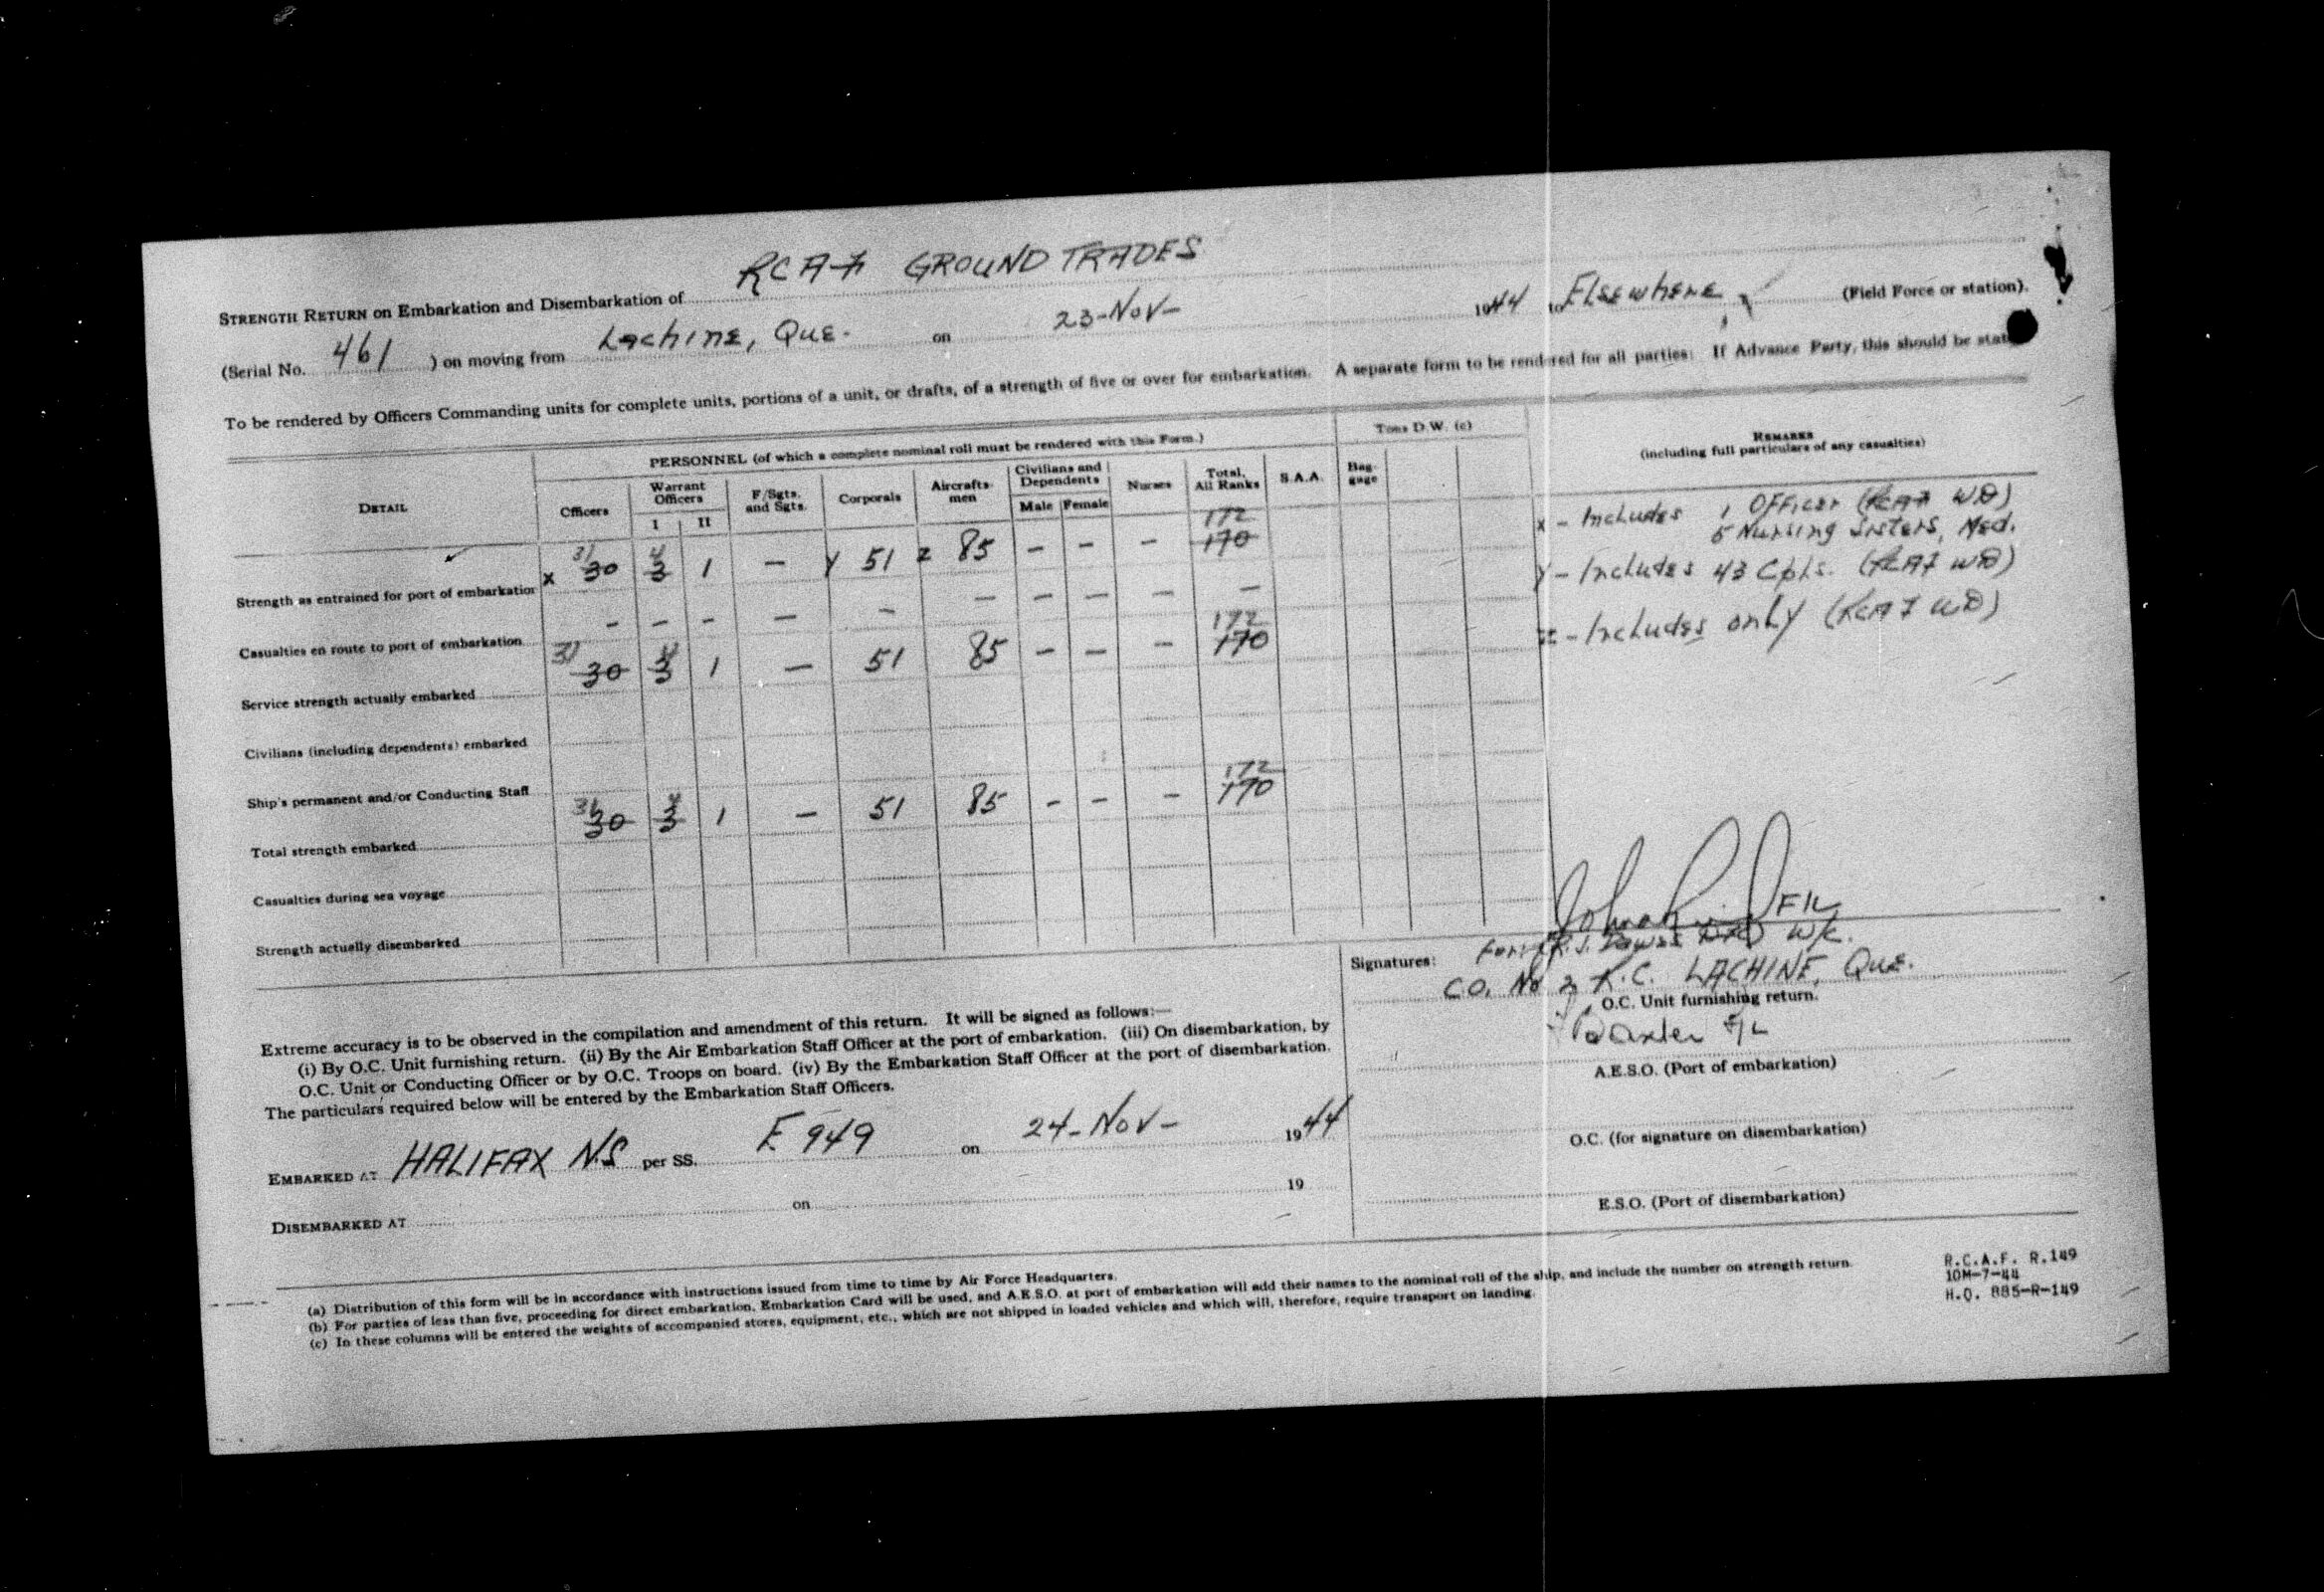 STRENGTH RETURN on Embarkation and Disembarkation of RCAF GROUND TRADES
(Serial No. 461 ) on moving from Lachine, Que. on 23-Nov- 1944 to Elsewhere (Field Force or station).
To be rendered by Officers Commanding units for complete units, portions of a unit, or drafts, of a strength of five or over for embarkation. A separate form to be rendered for all parties: If Advance Party, this should be stat
PERSONNEL (of which a complete nominal roll must be rendered with this Form.) Tons D.W. (c) REMARKS
(including full particulars of any casualties)
DETAIL Officers Warrant Officers I II F/Sgts. and Sgts. Corporals Aircraftsmen Civilians and Dependents Male Female Nurses Total, All Ranks S.A.A. Baggage
31 4 172
Strength as entrained for port of embarkation x 30 3 1 — y 51 z 85 — — — 170
Casualties en route to port of embarkation — — — — — — — — — —
31 4 172
Service strength actually embarked 30 3 1 — 51 85 — — — 170
Civilians (including dependents) embarked
Ship's permanent and/or Conducting Staff
31 4 172
Total strength embarked 30 3 1 — 51 85 — — — 170
Casualties during sea voyage
Strength actually disembarked
x - Includes 1 Officer (RCAF WD)
5 Nursing Sisters, Med.
y - Includes 43 Cpls. (RCAF WD)
z - Includes only (RCAF WD)
Signatures: F/L
For: W/C.
C.O. No K.C. LACHINE, Que.
O.C. Unit furnishing return.
Baxter F/L
A.E.S.O. (Port of embarkation)
O.C. (for signature on disembarkation)
E.S.O. (Port of disembarkation)
Extreme accuracy is to be observed in the compilation and amendment of this return. It will be signed as follows:—
(i) By O.C. Unit furnishing return. (ii) By the Air Embarkation Staff Officer at the port of embarkation. (iii) On disembarkation, by
O.C. Unit or Conducting Officer or by O.C. Troops on board. (iv) By the Embarkation Staff Officer at the port of disembarkation.
The particulars required below will be entered by the Embarkation Staff Officers.
EMBARKED AT HALIFAX N.S per SS. E 949 on 24-Nov- 1944
DISEMBARKED AT on 19
(a) Distribution of this form will be in accordance with instructions issued from time to time by Air Force Headquarters.
(b) For parties of less than five, proceeding for direct embarkation, Embarkation Card will be used, and A.E.S.O. at port of embarkation will add their names to the nominal roll of the ship, and include the number on strength return.
(c) In these columns will be entered the weights of accompanied stores, equipment, etc., which are not shipped in loaded vehicles and which will, therefore, require transport on landing.
R.C.A.F. R.149
10M-7-44
H.Q. 885-R-149